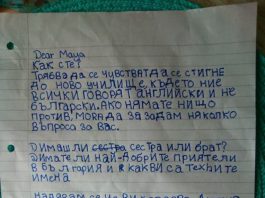 Dear Maya
Как сте?
Трябва да се чувства да се стигне
до ново училище, където ние
всички говорят английски и не
български. Ако нямате нищо
против, мога да задам няколко
въпроса за вас.
Димашли сестра сестра или брат?
Димате ли най-добрите приятели
в България и какви са техните
имена